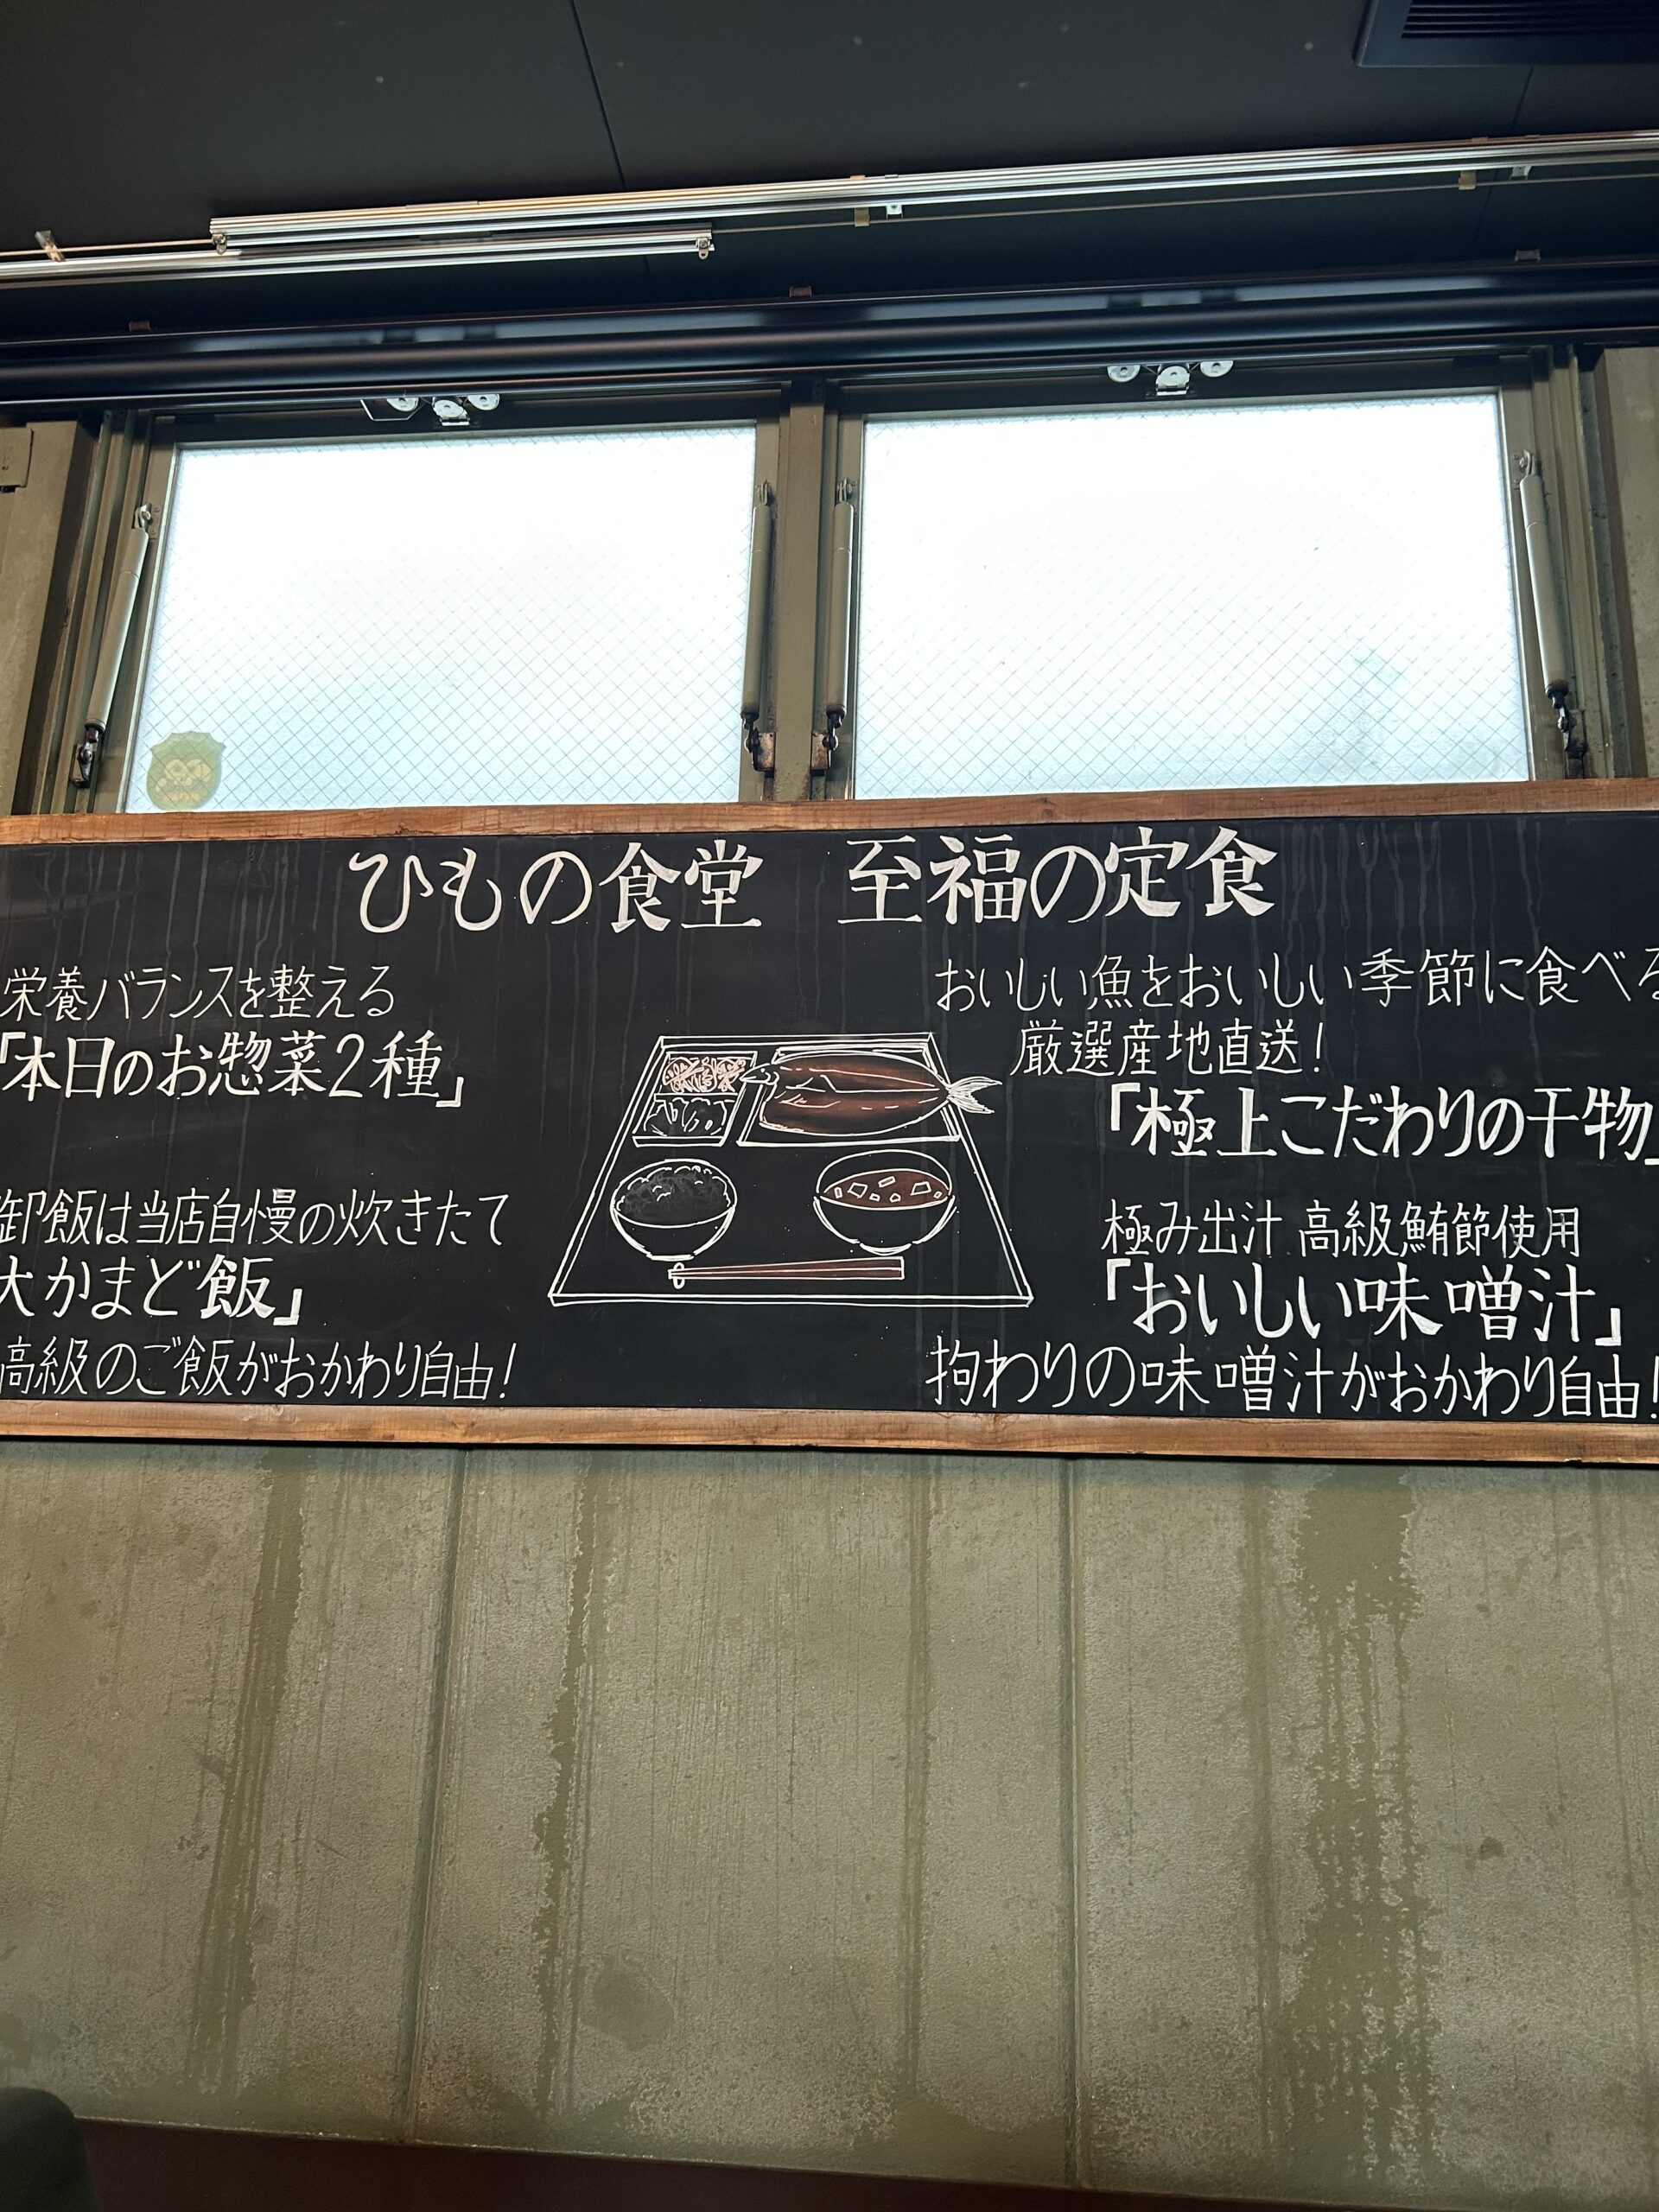 ひもの食堂 至福の定食
栄養バランスを整える
「本日のお惣菜2種」
御飯は当店自慢の炊きたて
大かまど飯」
高級のご飯がおかわり自由!
おいしい魚をおいしい季節に食べる
厳選産地直送!
「極上こだわりの干物」
極み出汁 高級鮪節使用
「おいしい味噌汁」
拘わりの味噌汁がおかわり自由!